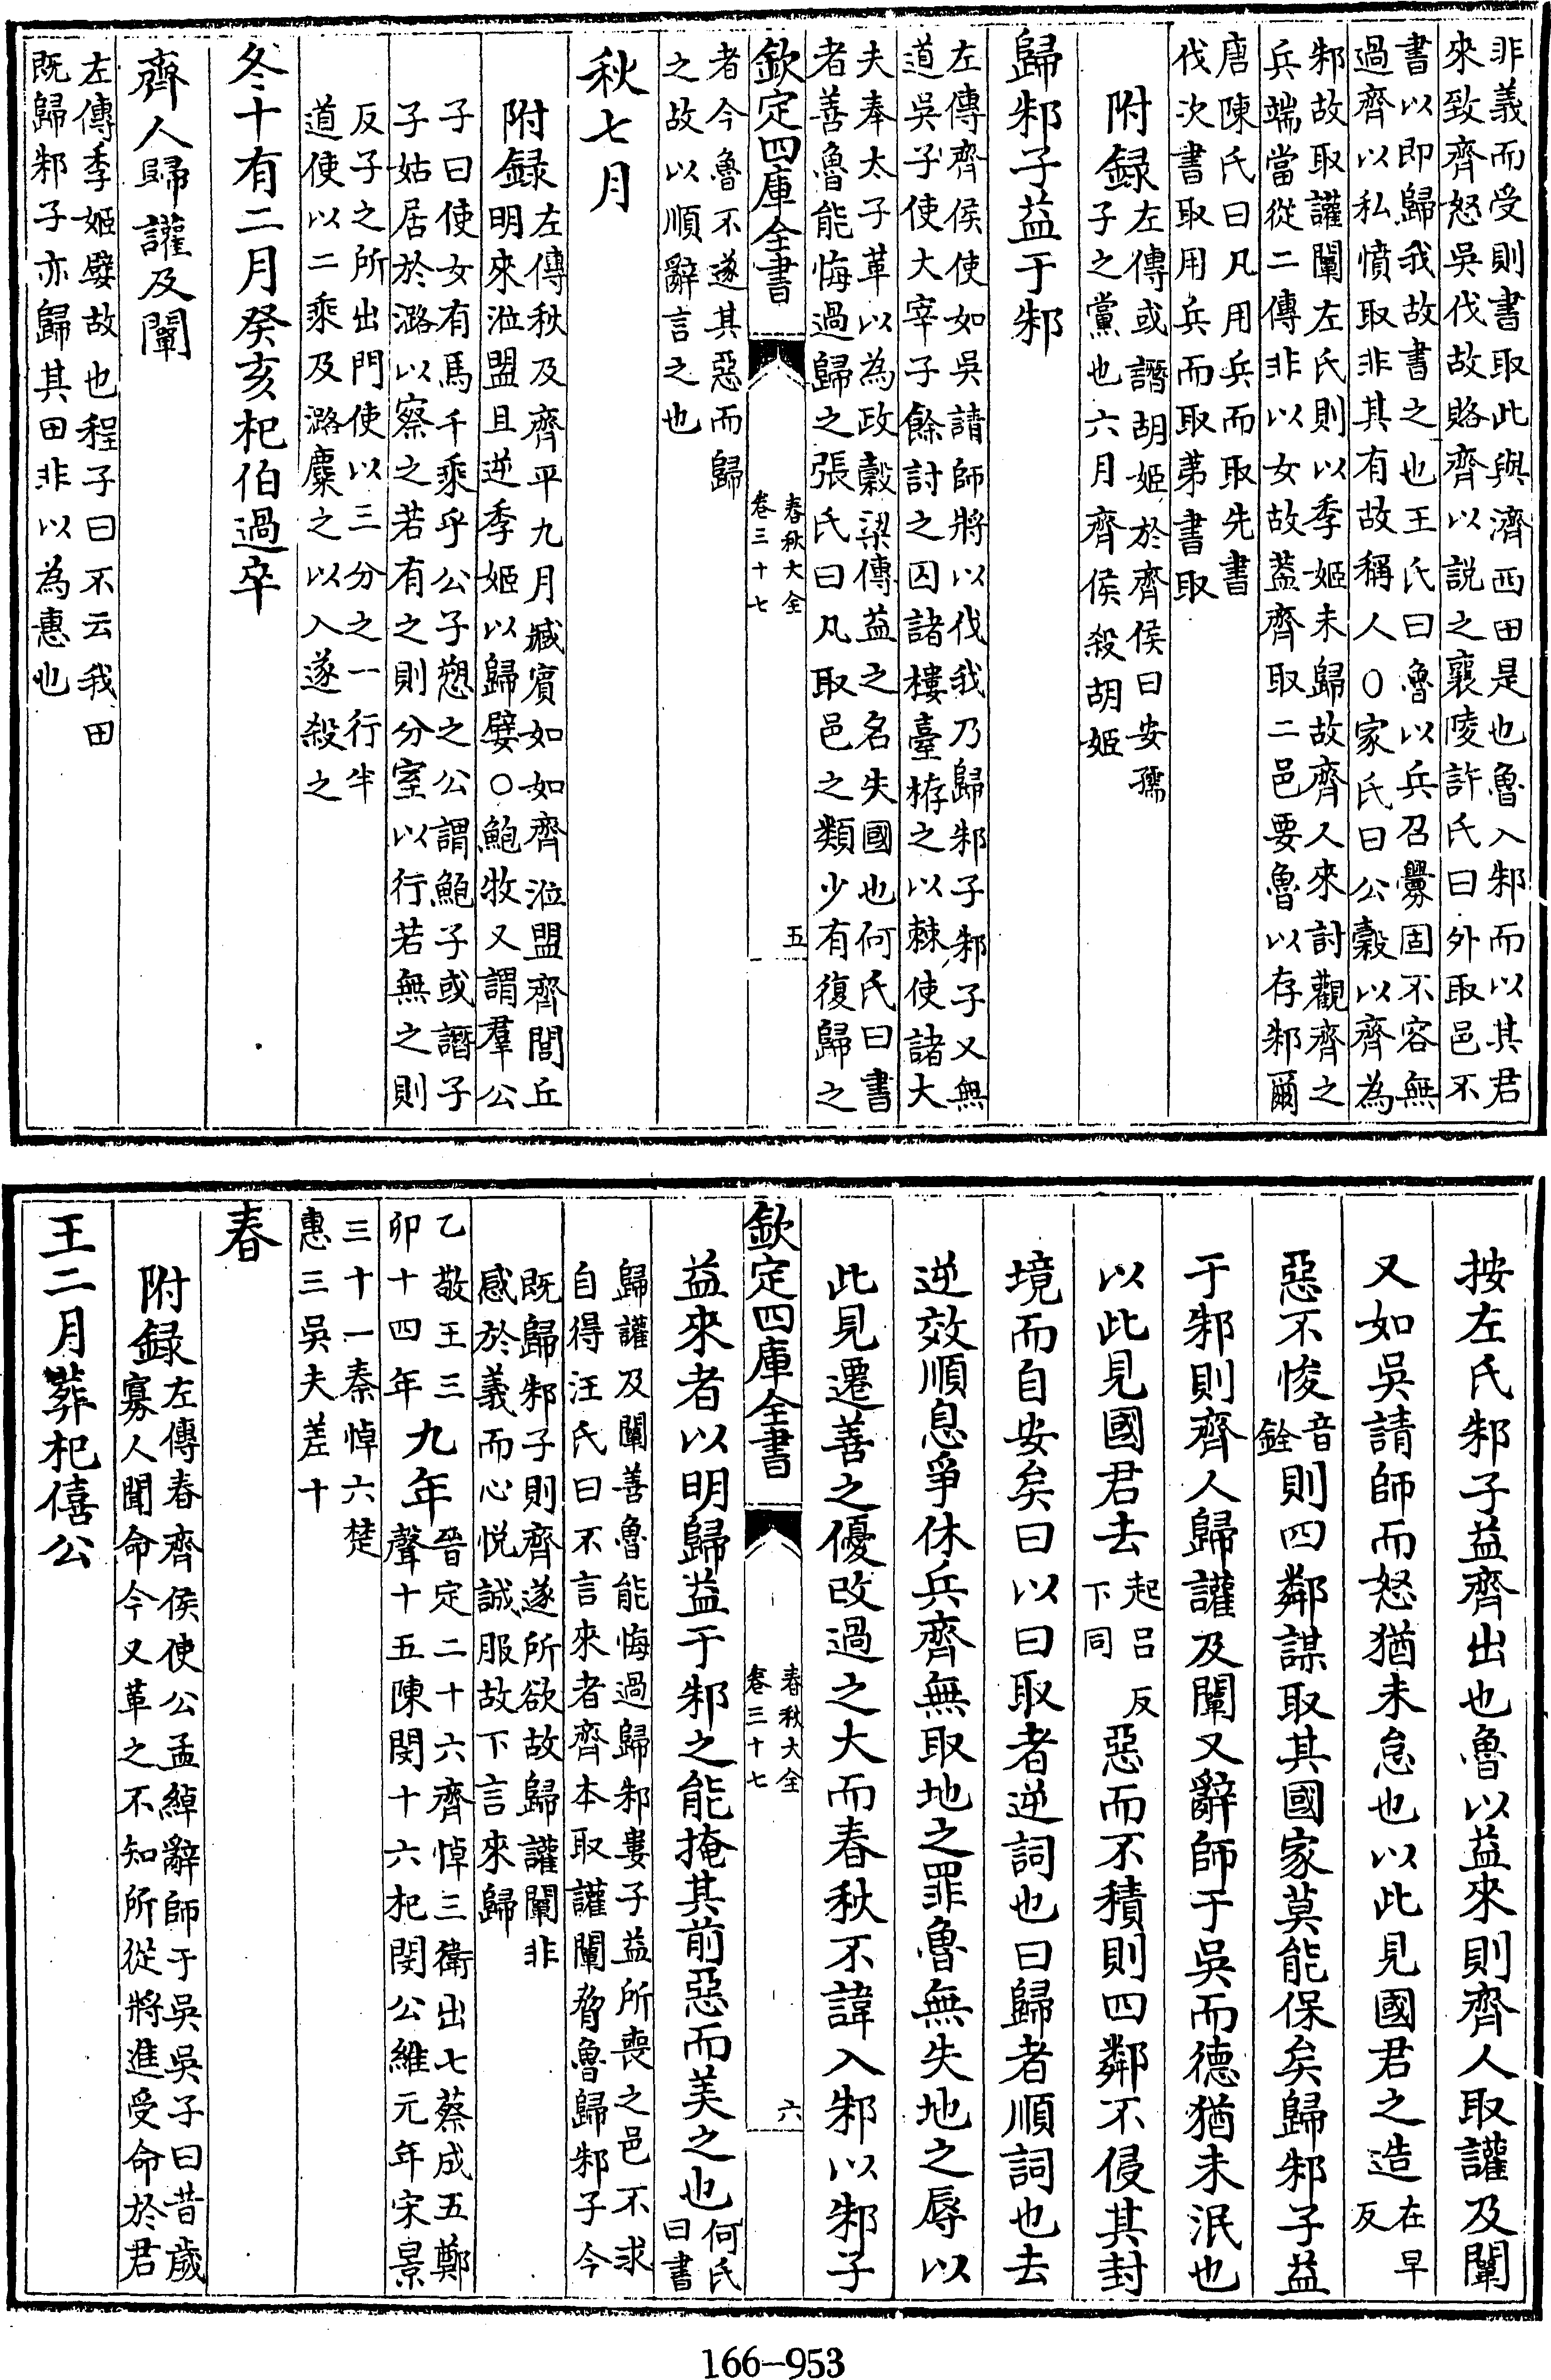 非義而受則書取此與濟西田是也魯入邾而以其君
來致齊怒吳伐故賂齊以説之襄陵許氏曰外取邑不
書以即歸我故書之也王氏曰魯以兵召釁固不容無
過齊以私憤取非其有故稱人○家氏曰公穀以齊為
邾故取讙闡左氏則以季姬未歸故齊人來討觀齊之
兵端當從二傳非以女故葢齊取二邑要魯以存邾爾
唐陳氏曰凡用兵而取先書
伐次書取用兵而取苐書取
附録左傳或譖胡姬於齊侯曰安孺
子之黨也六月齊侯殺胡姬
歸邾子益于邾
左傳齊侯使如吳請師將以伐我乃歸邾子邾子又無
道吳子使大宰子餘討之囚諸樓臺栫之以棘使諸大
夫奉太子革以為政穀梁傳益之名失國也何氏曰書
者善魯能悔過歸之張氏曰凡取邑之類少有復歸之
欽定四庫全書
春秋大全
卷三十七
五
者今魯不遂其惡而歸
之故以順辭言之也
秋七月
附録左傳秋及齊平九月臧賓如如齊涖盟齊閭丘
明來涖盟且逆季姬以歸嬖○鮑牧又謂羣公
子曰使女有馬千乘乎公子愬之公謂鮑子或譖子
子姑居於潞以察之若有之則分室以行若無之則
反子之所出門使以三分之一行半
道使以二乘及潞麇之以入遂殺之
冬十有二月癸亥杞伯過卒
齊人歸讙及闡
左傳季姬嬖故也程子曰不云我田
既歸邾子亦歸其田非以為惠也
按左氏邾子益齊出也魯以益來則齊人取讙及闡
又如吳請師而怒猶未怠也以此見國君之造在早
反
惡不悛音
銓則四鄰謀取其國家莫能保矣歸邾子益
于邾則齊人歸讙及闡又辭師于吳而德猶未泯也
以此見國君去起呂反
下同惡而不積則四鄰不侵其封
境而自安矣曰以曰取者逆詞也曰歸者順詞也去
逆效順息爭休兵齊無取地之罪魯無失地之辱以
此見遷善之優改過之大而春秋不諱入邾以邾子
欽定四庫全書
春秋大全
卷三十七
六
益來者以明歸益于邾之能掩其前惡而美之也何氏
曰書
歸讙及闡善魯能悔過歸邾婁子益所喪之邑不求
自得汪氏曰不言來者齊本取讙闡脅魯歸邾子今
既歸邾子則齊遂所欲故歸讙闡非
感於義而心悦誠服故下言來歸
乙敬王三
卯十四年九年晉定二十六齊悼三衛出七蔡成五鄭
聲十五陳閔十六杞閔公維元年宋景
三十一秦悼六楚
惠三吳夫差十
春
附録左傳春齊侯使公孟綽辭師于吳吳子曰昔歲
寡人聞命今又革之不知所從將進受命於君
王二月葬杞僖公
166-953